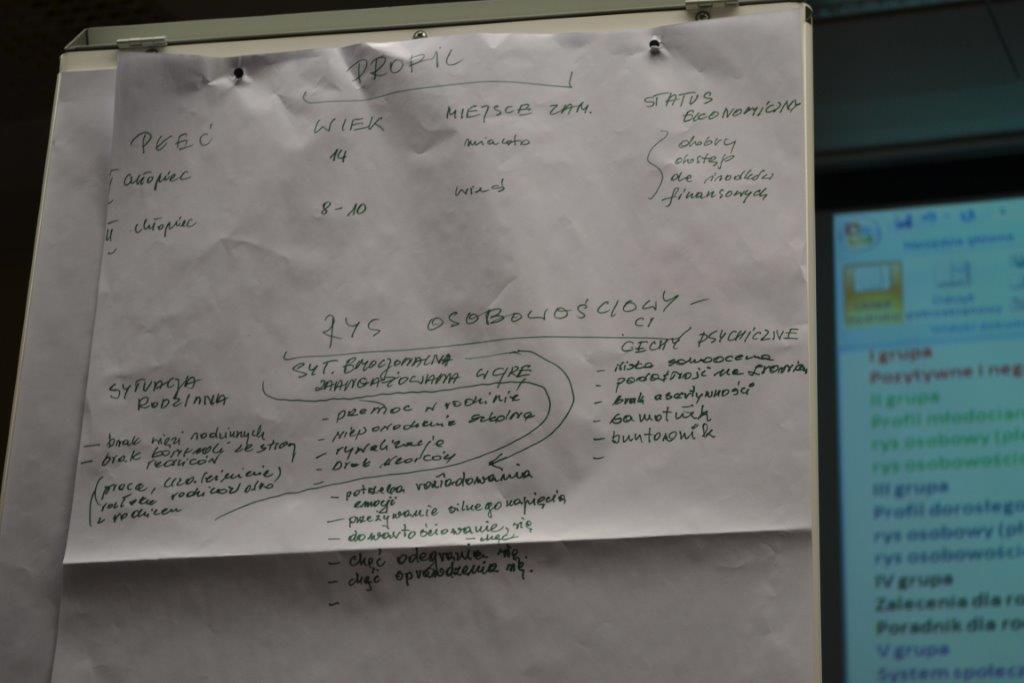 PROFIL
PŁEĆ
WIEK
MIEJSCE ZAM.
STATUS
EKONOMICZNY
I chłopiec
14
miasto
dobry
dostęp
do środków
finansowych
II chłopiec
8-10
wieś
RYS OSOBOWOŚCIOWY -
SYTUACJA
RODZINNA
- brak więzi rodzinnych
- brak kontroli ze strony
rodziców
(praca,
rodziców
SYT. EMOCJONALNA
ZAANGAŻOWANA W GRĘ
- przemoc w rodzinie
- niepowodzenia szkolne
- rywalizacja
- brak wzorców
- potrzeba rozładowania
emocji
- przeżywanie silnego napięcia
- dowartościowanie się
- chęć
- chęć odegrania się
- chęć sprawdzenia się.
-
CECHY PSYCHICZNE
- niska samoocena
- podatność na
- brak asertywności
- samotnik
- buntownik
-
I grupa
Pozytywne i neg
II grupa
Profil młodocian
rys osobowy (pł
rys osobowośc
III grupa
Profil dorosłego
rys osobowy (pł
rys osobowośc
IV grupa
Zalecenia dla ro
Poradnik dla ro
V grupa
System społecz